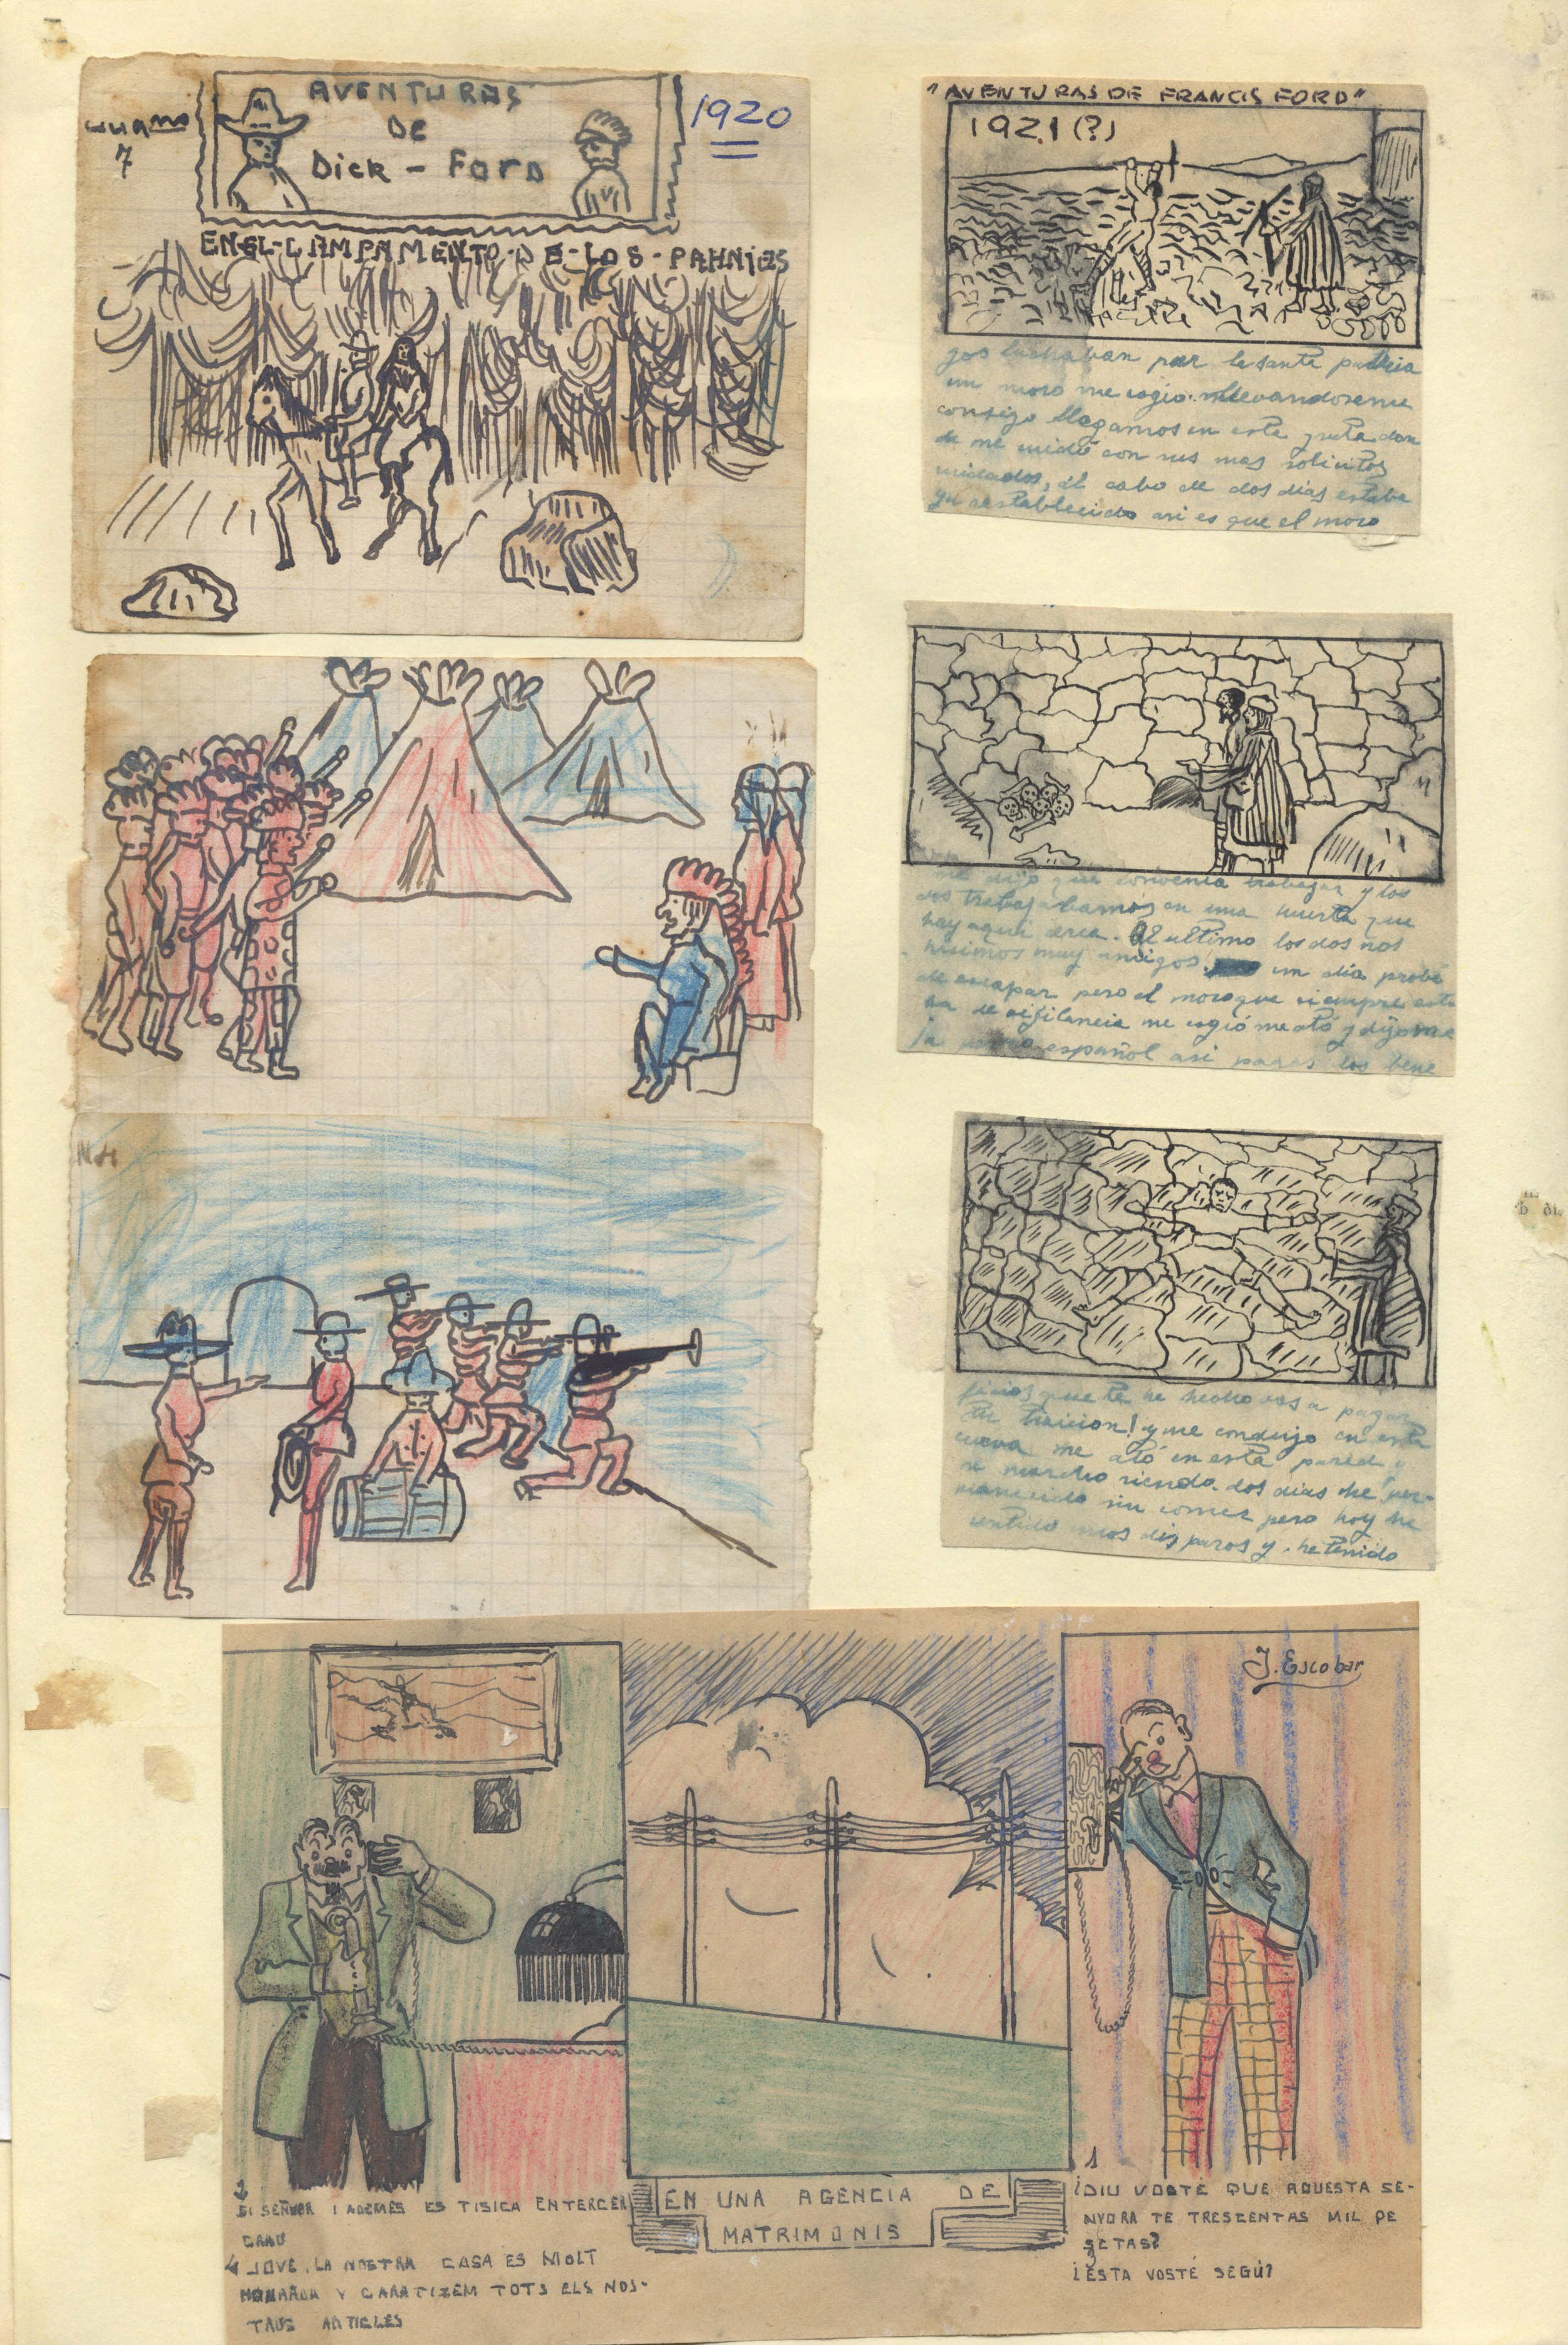 AVENTURAS
DE
Dick - Ford
1920
7
EN-EL-CAMPAMENTO-DE-LOS-PAHNIES
"AVENTURAS DE FRANCIS FORD"
1921 (?)
jos luchaban por la santa patria
un moro me cogio llevandoseme
consigo llegamos en esta gruta don
de me cuidó con sus mas solicitos
cuidados, al cabo de dos dias estaba
ya restablecido asi es que el moro
me dijo que convenia trabajar y los
dos trabajabamos en una huerta que
hay aqui cerca. Al ultimo los dos nos
hicimos muy amigos un dia probé
de escapar pero el moro que siempre esta
ba de vigilancia me cogió me ató y dijome
ja perro español asi pagas los bene
ficios que te he hecho vas a pagar
tu traicion! y me condujo en esta
cueva me ató en esta pared y
se marcho riendo. dos dias he per-
manecido sin comer pero hoy he
sentido unos disparos y he tenido
J. Escobar
1
¿DIU VOSTÉ QUE AQUESTA SE-
NYORA TE TRESCENTAS MIL PE
SETAS?
3
¿ESTA VOSTÉ SEGÚ?
EN UNA AGENCIA DE
MATRIMONIS
2
SI SEÑOR I ADEMÉS ES TISICA EN TERCER
GRAU
4 JOVE, LA NOSTRA CASA ES MOLT
HONRADA Y GARATIZEM TOTS ELS NOS-
TRUS ARTICLES